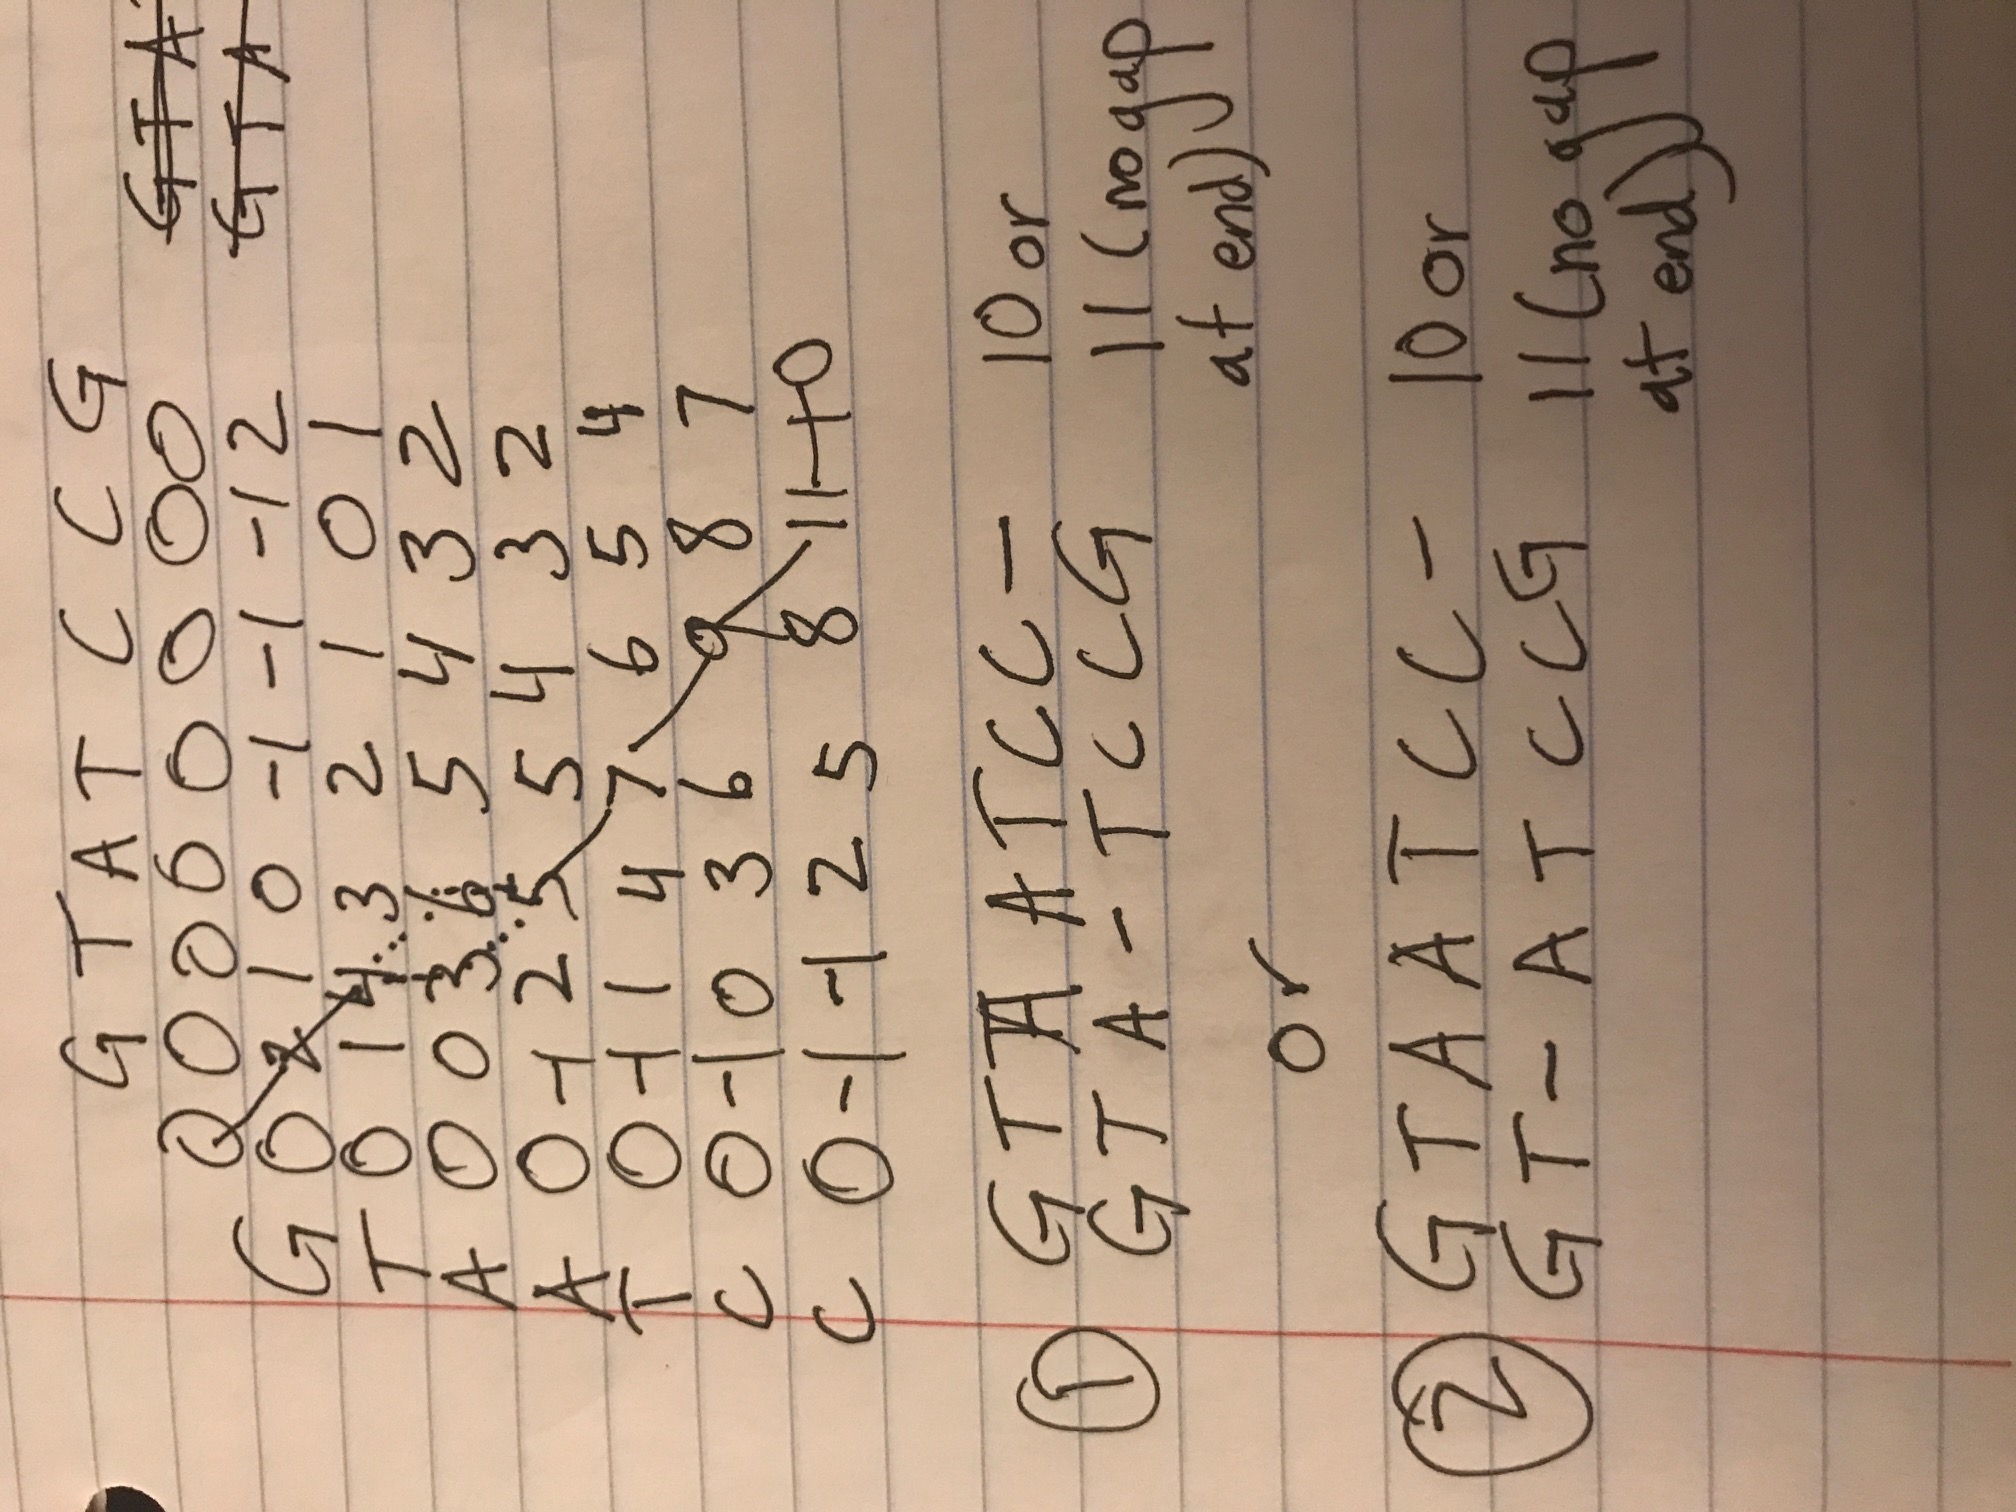 G T A T C C G
0 0 0 0 0 0 0 0
G T A
G 0 2 1 0 -1 -1 -1 2
G T A
T 0 1 4 3 2 1 0 1
A 0 0 3 6 5 4 3 2
A 0 -1 2 5 5 4 3 2
T 0 -1 1 4 7 6 5 4
C 0 -1 0 3 6 9 8 7
C 0 -1 -1 2 5 8 11 10
① G T A A T C C - 10 or
G T A - T C C G 11 (no gap
at end)
or
② G T A A T C C - 10 or
G T - A T C C G 11 (no gap
at end)